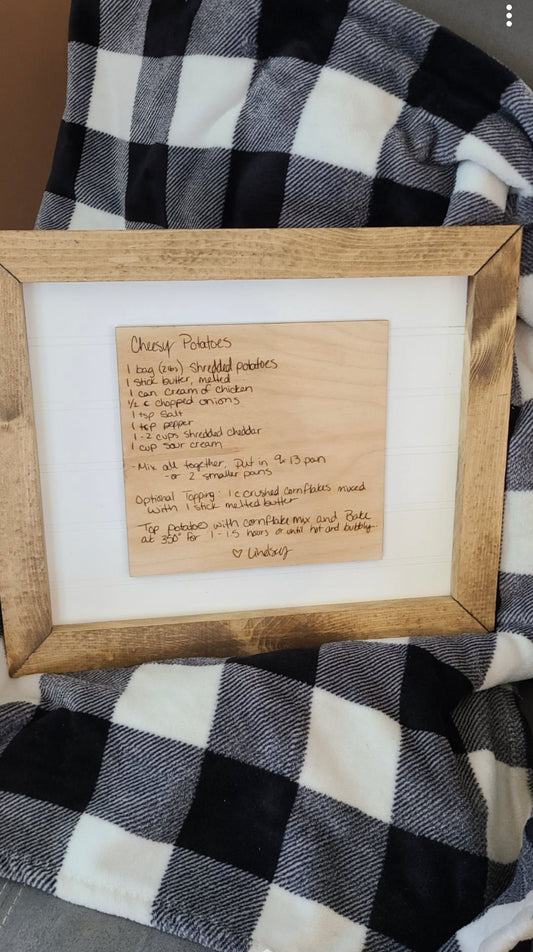 Cheesy Potatoes
1 bag (2lbs) shredded potatoes
1 stick butter, melted
1 can cream of chicken
1/2 c chopped onions
1 tsp salt
1 tsp pepper
1-2 cups shredded cheddar
1 cup sour cream
-Mix all together, Put in 9x13 pan
-or 2 smaller pans
Optional Topping: 1 c crushed cornflakes mixed
with 1 stick melted butter
Top potatoes with cornflake mix and Bake
at 350° for 1-1.5 hours or until hot and bubbly.
♡ Lindsey